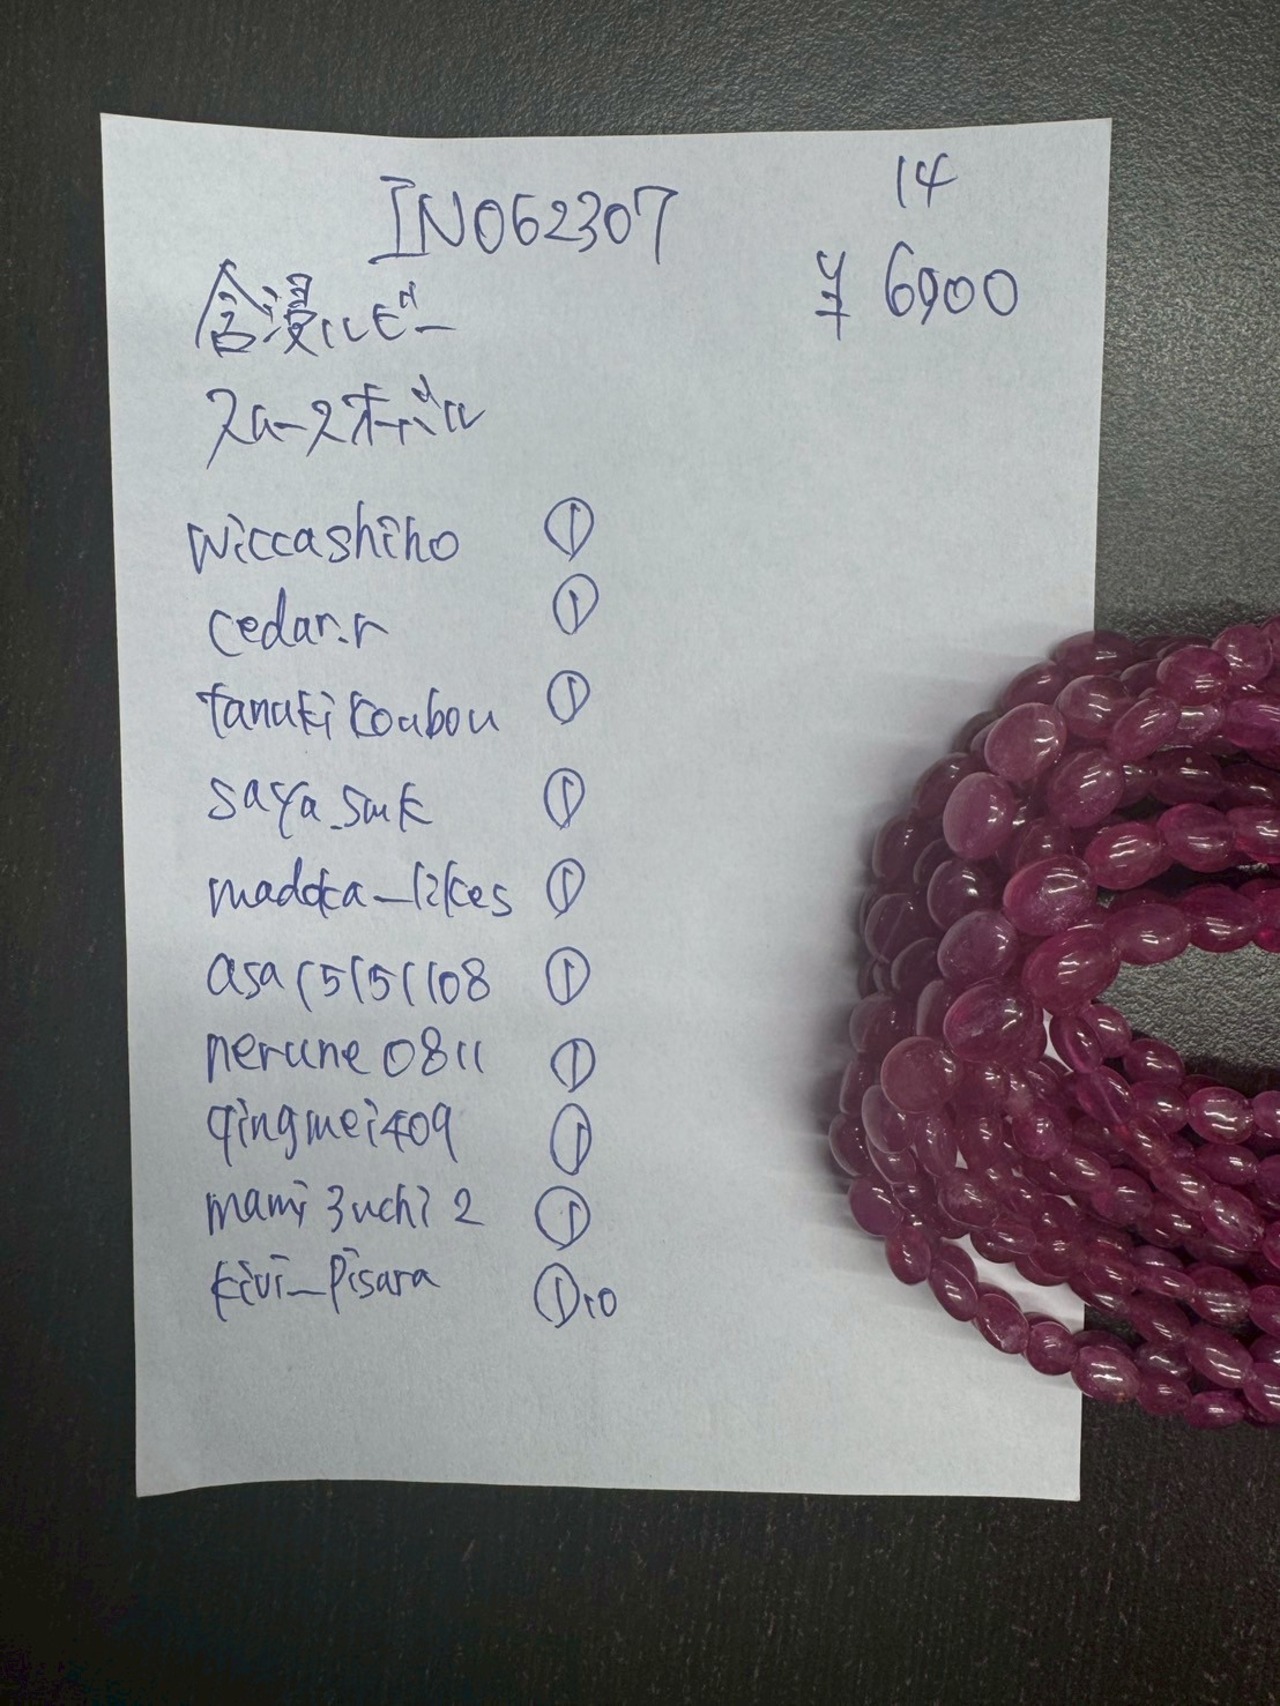 IN062307
14
¥6900
含浸ルビー
スムースオーバル
wiccashiho ①
cedar.r ①
tanukikoubou ①
saya_smk ①
madoka_likes ①
asa15151108 ①
nerune0811 ①
qingmei409 ①
mami3uchi2 ①
kivi_pisara ①10